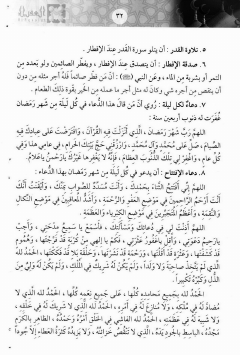 ٣٢
٥. تلاوة القدر : أن يتلو سورة القدر عند الإفطار .
٦. صدقة الإفطار : أن يتصدق عند الإفطار ، ويفطر الصائمين ولو بعدد من
التمر أو بشربة من الماء ، وعن النبي (ﷺ) : أن من فطر صائماً فله أجر مثله من دون
أن ينقص من أجره شي وكان له مثل أجر ما عمله من الخير بقوة ذلك الطعام .
٧. دعاء لكل ليلة : روي أن من قال هذا الدعاء في كل ليلة من شهر رمضان
غفرت له ذنوب أربعين سنة :
اللهم رب شهر رمضان ، الذي أنزلت فيه القرآن ، وافترضت على عبادك فيه
الصيام ، صل على محمد وآل محمد ، وارزقني حج بيتك الحرام ، في عامي هذا وفي
كل عام ، واغفر لي تلك الذنوب العظام ، فإنه لا يغفرها غيرك يا رحمن يا علام .
٨. دعاء الإفتتاح : أن يدعو في كل ليلة من شهر رمضان بهذا الدعاء :
اللهم إني أفتتح الثناء بحمدك ، وأنت مسدد للصواب بمنك ، وأيقنت أنك
أنت أرحم الراحمين في موضع العفو والرحمة ، وأشد المعاقبين في موضع النكال
والنقمة ، وأعظم المتجبرين في موضع الكبرياء والعظمة .
اللهم أذنت لي في دعائك ومسألتك ، فاسمع يا سميع مدحتي ، وأجب
يا رحيم دعوتي ، وأقل يا غفور عثرتي ، فكم يا إلهي من كربة قد فرجتها ، وهموم
قد كشفتها ، وعثرة قد أقلتها ، ورحمة قد نشرتها ، وحلقة بلاء قد فككتها ، الحمد لله
الذي لم يتخذ صاحبة ولا ولداً ، ولم يكن له شريك في الملك ، ولم يكن له ولي من
الذل وكبره تكبيراً .
الحمد لله بجميع محامده كلها ، على جميع نعمه كلها ، الحمد لله الذي لا
مضاد له في ملكه ، ولا منازع له في أمره ، الحمد لله الذي لا شريك له في خلقه ،
ولا شبيه له في عظمته ، الحمد لله الفاشي في الخلق أمره وحمده ، الظاهر بالكرم
مجده ، الباسط بالجود يده ، الذي لا تنقص خزائنه ، ولا يزيده كثرة العطاء إلا جوداً